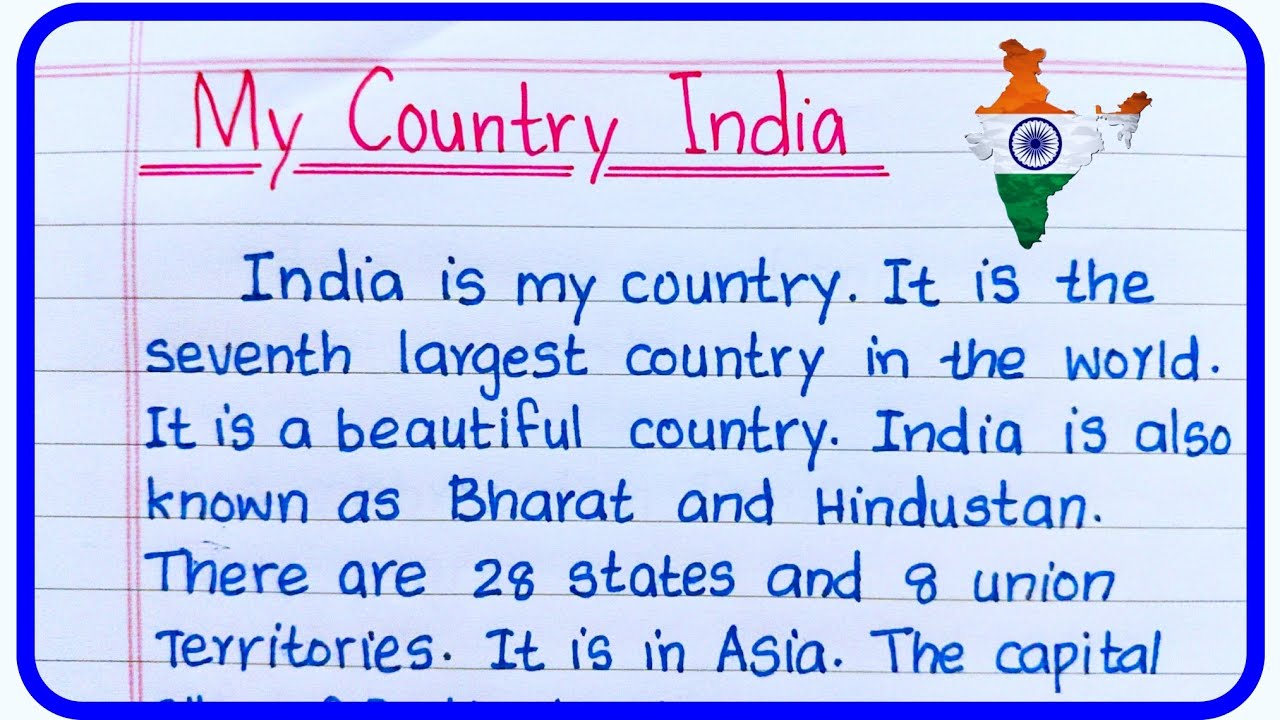 My Country India
India is my country. It is the
seventh largest country in the world.
It is a beautiful country. India is also
known as Bharat and Hindustan.
There are 28 states and 8 union
Territories. It is in Asia. The capital